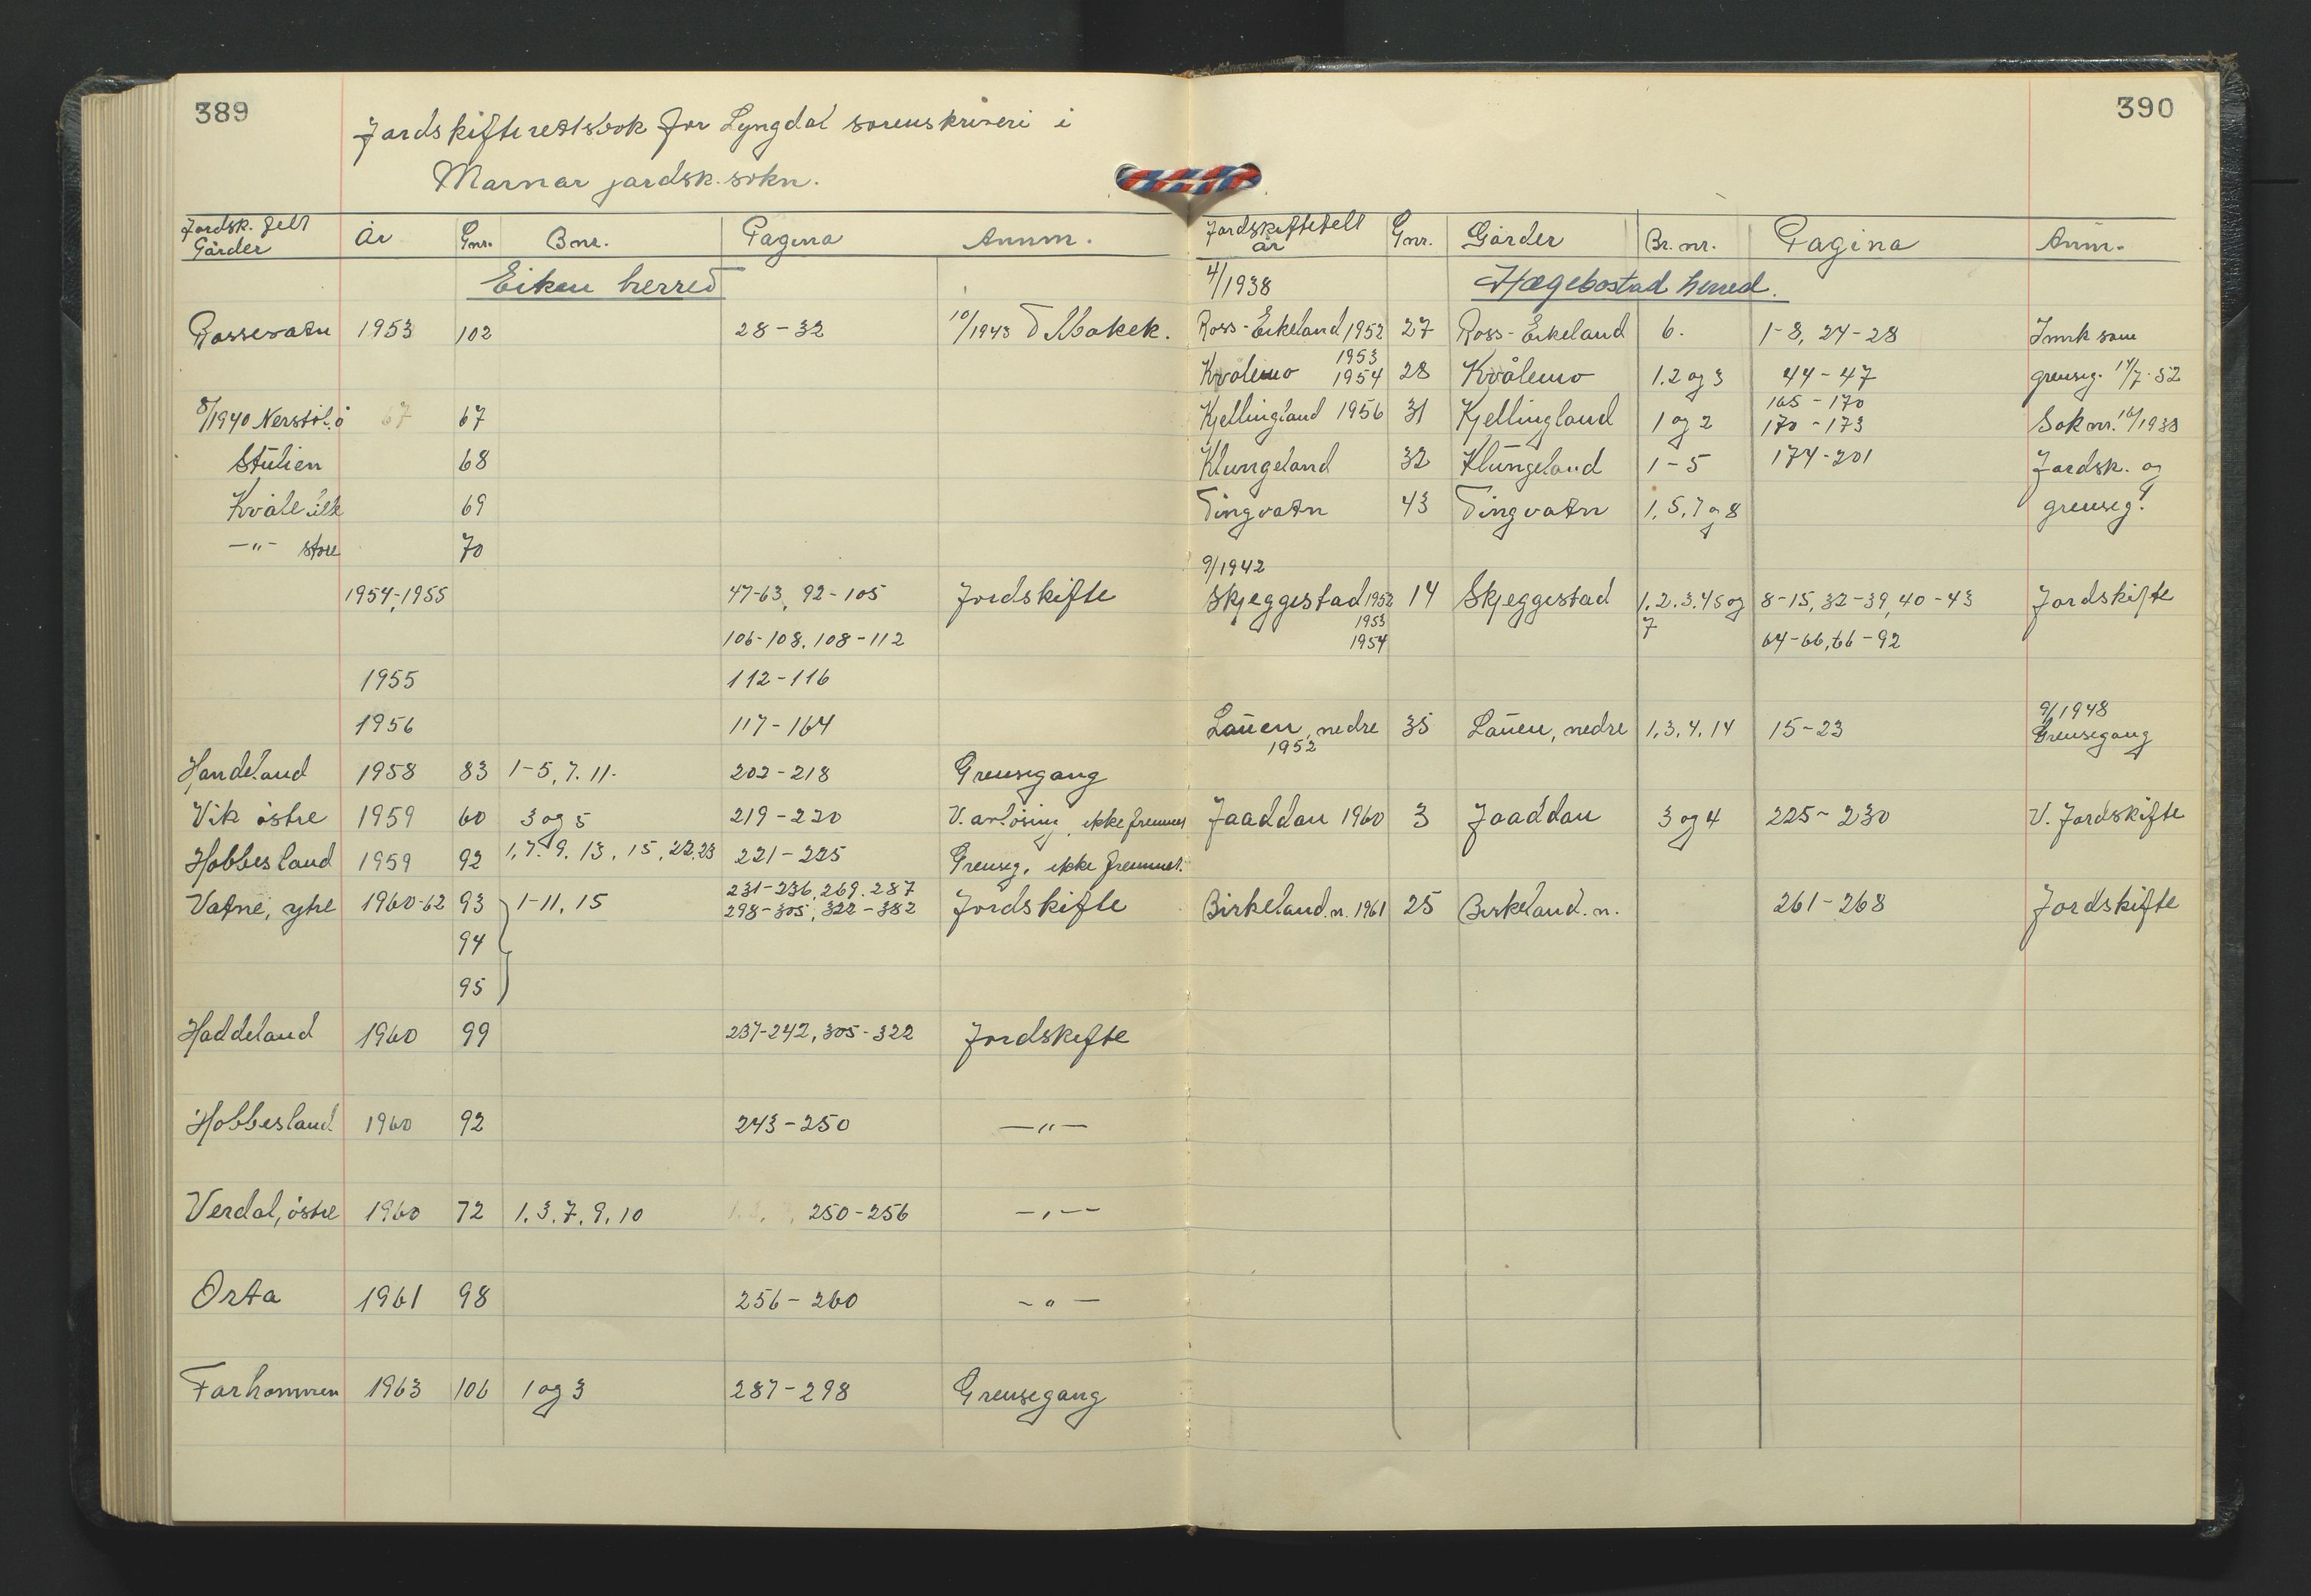 389
Jordskifterettsbok for Lyngdal sorenskriveri i
Marnar jordsk. sokn.
Jordsk. felt Gårder År Gnr. Bnr. Pagina Anm.
Eiken herred
1953 102 28-32 10/1943
8/1940 Nerstöl.ö 67 67
Stulien 68
Kvåle 69
-"- store 70
1954-1955 47-63, 92-105 Jordskifte
106-108, 108-112
1955 112-116
1956 117-164
Handeland 1958 83 1-5, 7. 11. 202-218 Grensegang
Vik östre 1959 60 3 og 5 219-220 V. avlösing, ikke fremmet
Hobbesland 1959 92 1, 7. 9. 13, 15, 22, 23 221-225 Grenseg. ikke fremmet.
Vatne, ytre 1960-62 93 1-11, 15 231-236, 269. 287 298-305, 322-382 Jordskifte
94
95
Haddeland 1960 99 237-242, 305-322 Jordskifte
Hobbesland 1960 92 243-250 -"-
Verdal, östre 1960 72 1. 3. 7. 9. 10 250-256 -"-
Orta 1961 98 256-260 -"-
Farhommen 1963 106 1 og 3 287-298 Grensegang
390
Jordskiftefelt år Gnr. Gårder Br. nr. Pagina Anm.
4/1938 Hægebostad herred.
Ross-Eikeland 1952 27 Ross-Eikeland 6. 1-8, 24-28 Innk som
Kvålemo 1953 1954 28 Kvålemo 1. 2 og 3 44-47 grenseg. 17/7-52
Kjellingland 1956 31 Kjellingland 1 og 2 165-170 170-173 Sak nr. 16/1938
Klungeland 32 Klungeland 1-5 174-201 Jordsk. og
Tingvatn 43 Tingvatn 1, 5, 7 og 8 grenseg.
9/1942
Skjeggestad 1952 14 Skjeggestad 1. 2. 3. 4 5 og 8-15, 32-39, 40-43 Jordskifte
1953 7
1954 64-66, 66-92
9/1948
Lauen, nedre 35 Lauen, nedre 1. 3. 4. 14 15-23 Grensegang
1952
Jaaddan 1960 3 Jaaddan 3 og 4 225-230 V. Jordskifte
Birkeland. n. 1961 25 Birkeland. n. 261-268 Jordskifte